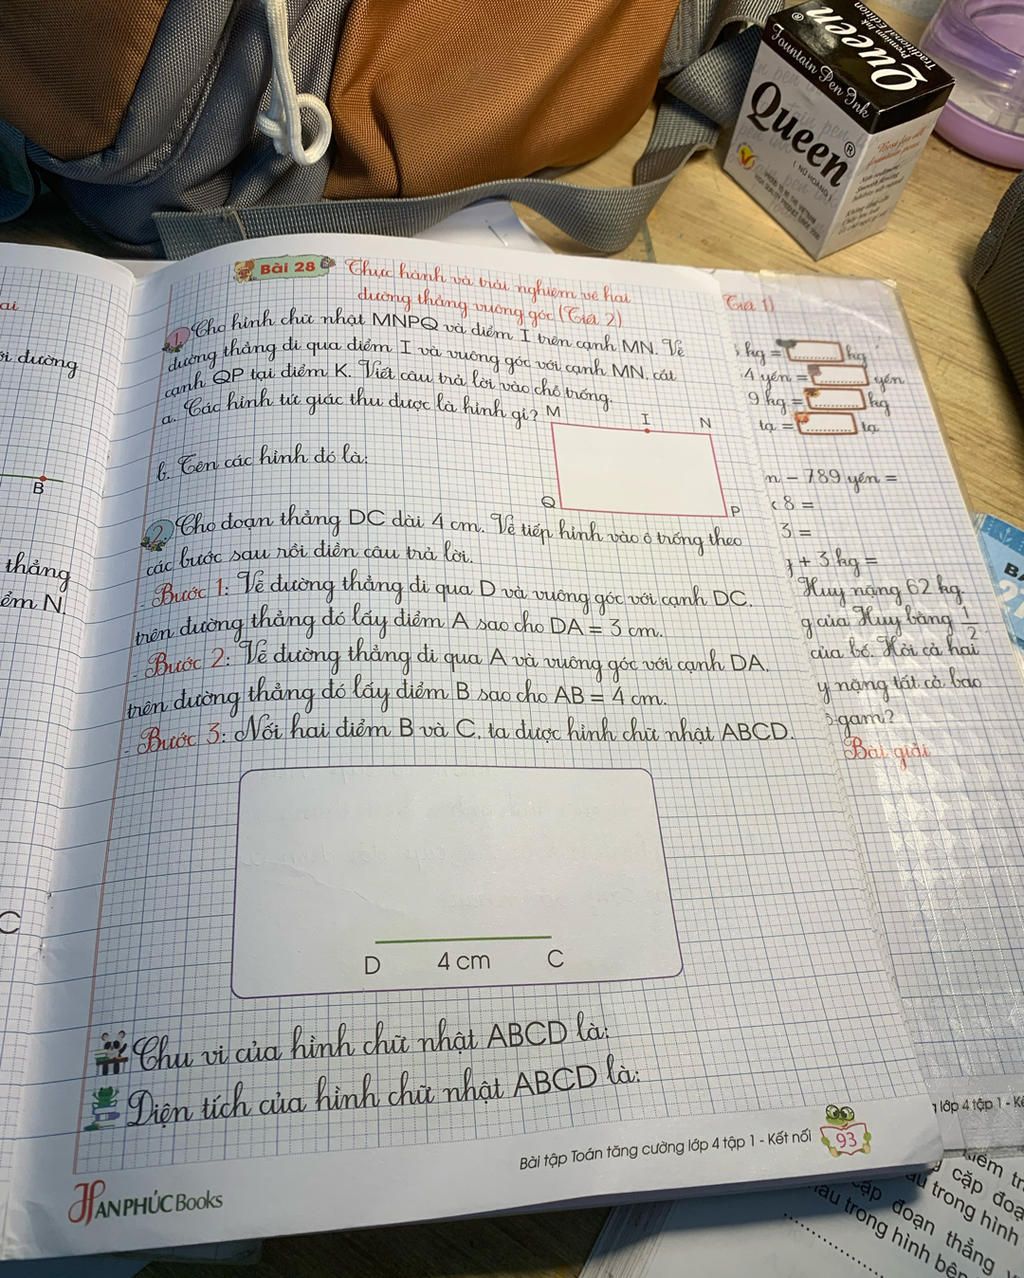 Queen
Premium Ink
Traditional Edition
Fountain Pen Ink
Queen®
( NỮ HOÀNG )
Bài 28
Thực hành và trải nghiệm vẽ hai
đường thẳng vuông góc (Tiết 2)
1. Cho hình chữ nhật MNPQ và điểm I trên cạnh MN. Vẽ
đường thẳng đi qua điểm I và vuông góc với cạnh MN, cắt
cạnh QP tại điểm K. Viết câu trả lời vào chỗ trống.
a. Các hình tứ giác thu được là hình gì?
M I N
Q P
b. Tên các hình đó là:
2. Cho đoạn thẳng DC dài 4 cm. Vẽ tiếp hình vào ô trống theo
các bước sau rồi điền câu trả lời.
- Bước 1: Vẽ đường thẳng đi qua D và vuông góc với cạnh DC,
trên đường thẳng đó lấy điểm A sao cho DA = 3 cm.
- Bước 2: Vẽ đường thẳng đi qua A và vuông góc với cạnh DA,
trên đường thẳng đó lấy điểm B sao cho AB = 4 cm.
- Bước 3: Nối hai điểm B và C, ta được hình chữ nhật ABCD.
D 4 cm C
Chu vi của hình chữ nhật ABCD là:
Diện tích của hình chữ nhật ABCD là:
Bài tập Toán tăng cường lớp 4 tập 1 - Kết nối
93
HANPHÚC Books
đường
B
thẳng
N
C
Tiết 1)
kg = ............ kg
4 yến = ............ yến
9 kg = ............ kg
tạ = ............ tạ
- 789 yến =
8 =
3 =
+ 3 kg =
Huy nặng 62 kg.
của Huy bằng 1/2
của bố. Hỏi cả hai
nặng tất cả bao
gam?
Bài giải
lớp 4 tập 1 -
cặp
trong hình
cặp đoạn thẳng
trong hình bên